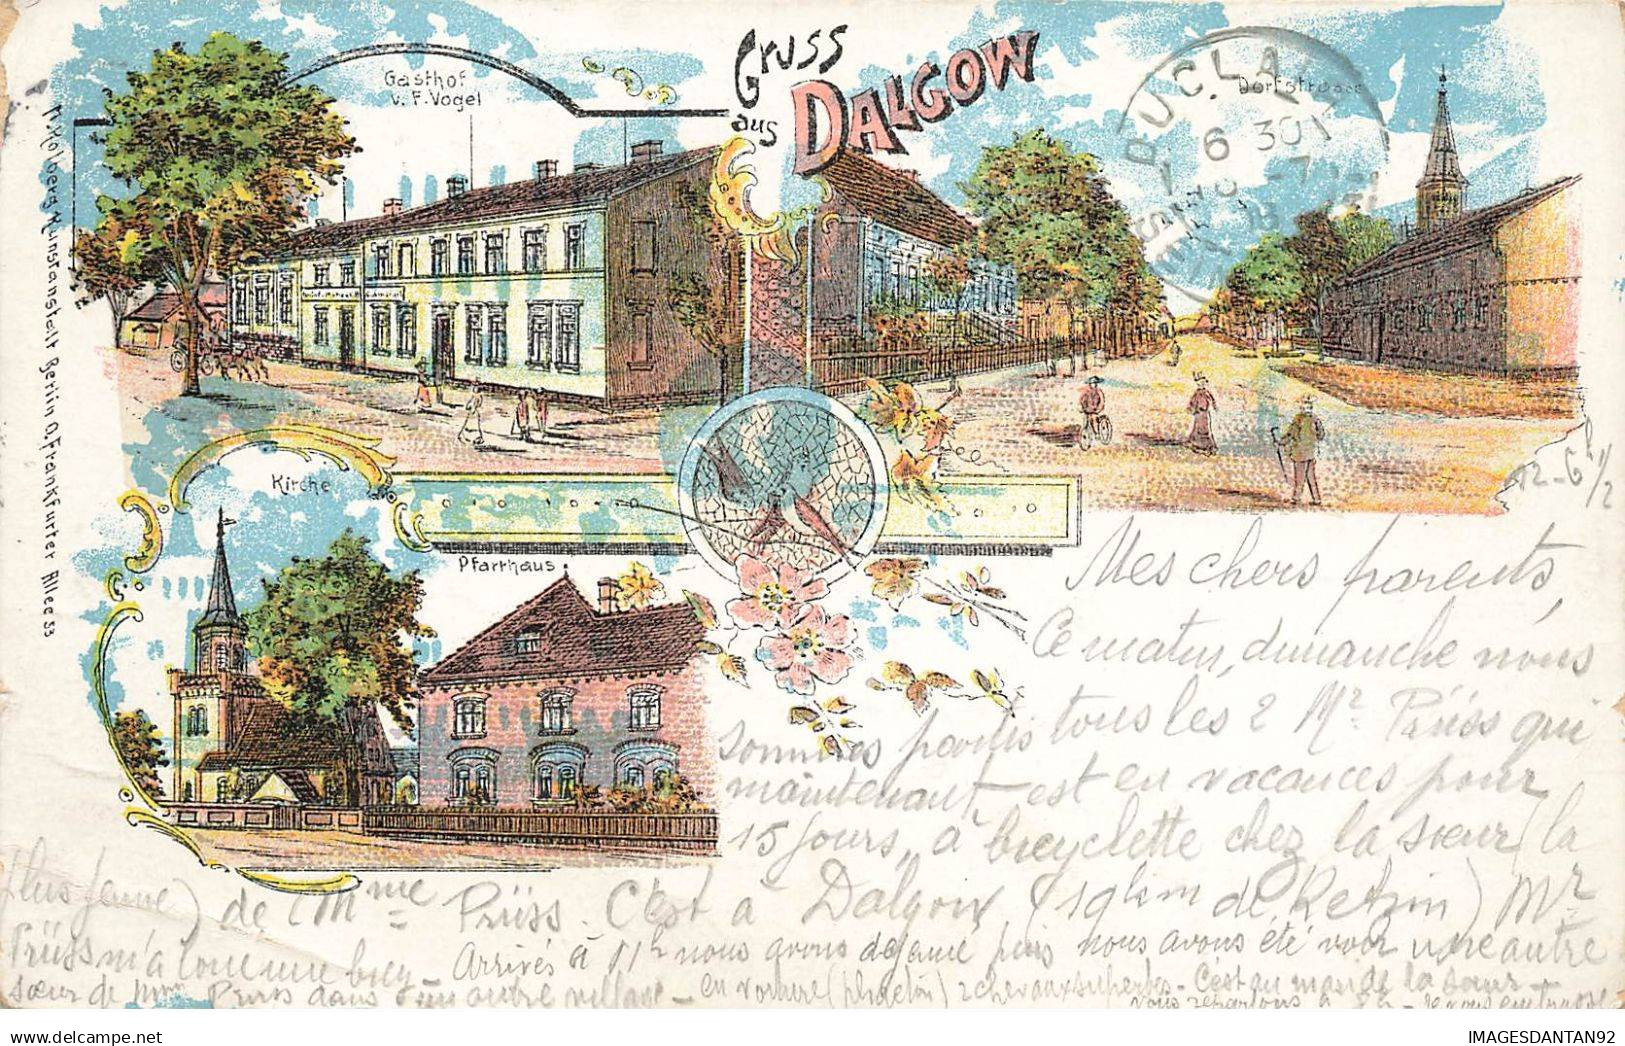 Gruss
aus
DALGOW
Gasthof
v. F. Vogel
Dorfstrasse
DUCLAIR
6 30
Kirche
Pfarrhaus
Kunstanstalt Berlin O, Frankfurter Allee 53
12-6h 1/2
Mes chers parents,
Ce matin, dimanche nous
sommes partis tous les 2 Mr Prüss qui
maintenant est en vacances pour
15 jours, à bicyclette chez la sœur (la
plus jeune) de Mme Prüss. C'est à Dalgow (19 km de Ketzin) Mr
Prüss m'a loué une bicy - Arrivés à 11h nous avons dejeuné puis nous avons été voir une autre
sœur de Mme Prüss dans un autre village - en voiture (phaéton) 2 chevaux superbes - C'est au mari de la sœur -
nous repartons à 8h - Je vous embrasse
IMAGESDANTAN92